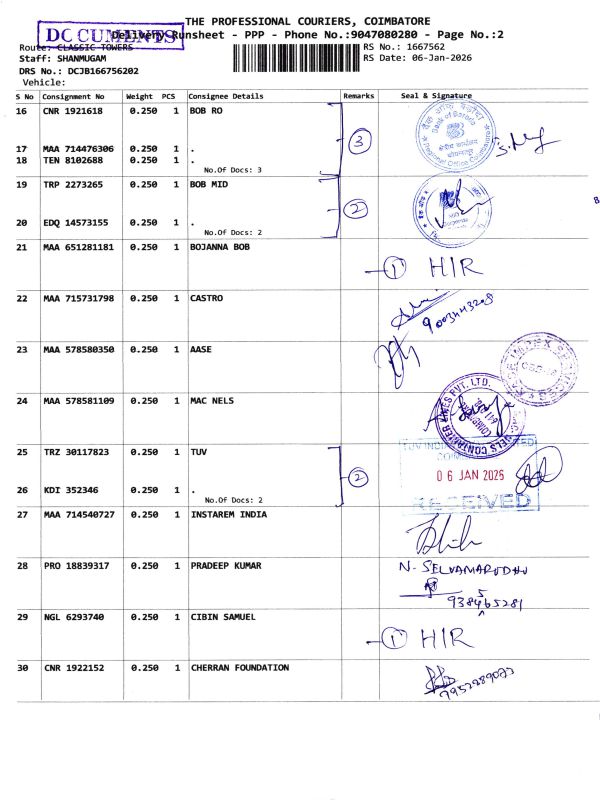 THE PROFESSIONAL COURIERS, COIMBATORE
DOCUMENTS
Delivery Runsheet - PPP - Phone No.:9047080280 - Page No.:2
Route: CLASSIC TOWERS
RS No.: 1667562
Staff: SHANMUGAM
RS Date: 06-Jan-2026
DRS No.: DCJB166756202
Vehicle:
S No Consignment No Weight PCS Consignee Details Remarks Seal & Signature
16 CNR 1921618 0.250 1 BOB RO
3
17 MAA 714476306 0.250 1 .
18 TEN 8102688 0.250 1 .
No.Of Docs: 3
19 TRP 2273265 0.250 1 BOB MID
2
20 EDQ 14573155 0.250 1 .
No.Of Docs: 2
21 MAA 651281181 0.250 1 BOJANNA BOB
1 HIR
22 MAA 715731798 0.250 1 CASTRO
23 MAA 578580350 0.250 1 AASE
24 MAA 578581109 0.250 1 MAC NELS
25 TRZ 30117823 0.250 1 TUV
2
06 JAN 2026
26 KDI 352346 0.250 1 .
No.Of Docs: 2
RECEIVED
27 MAA 714540727 0.250 1 INSTAREM INDIA
28 PRO 18839317 0.250 1 PRADEEP KUMAR
29 NGL 6293740 0.250 1 CIBIN SAMUEL
1 HIR
30 CNR 1922152 0.250 1 CHERRAN FOUNDATION